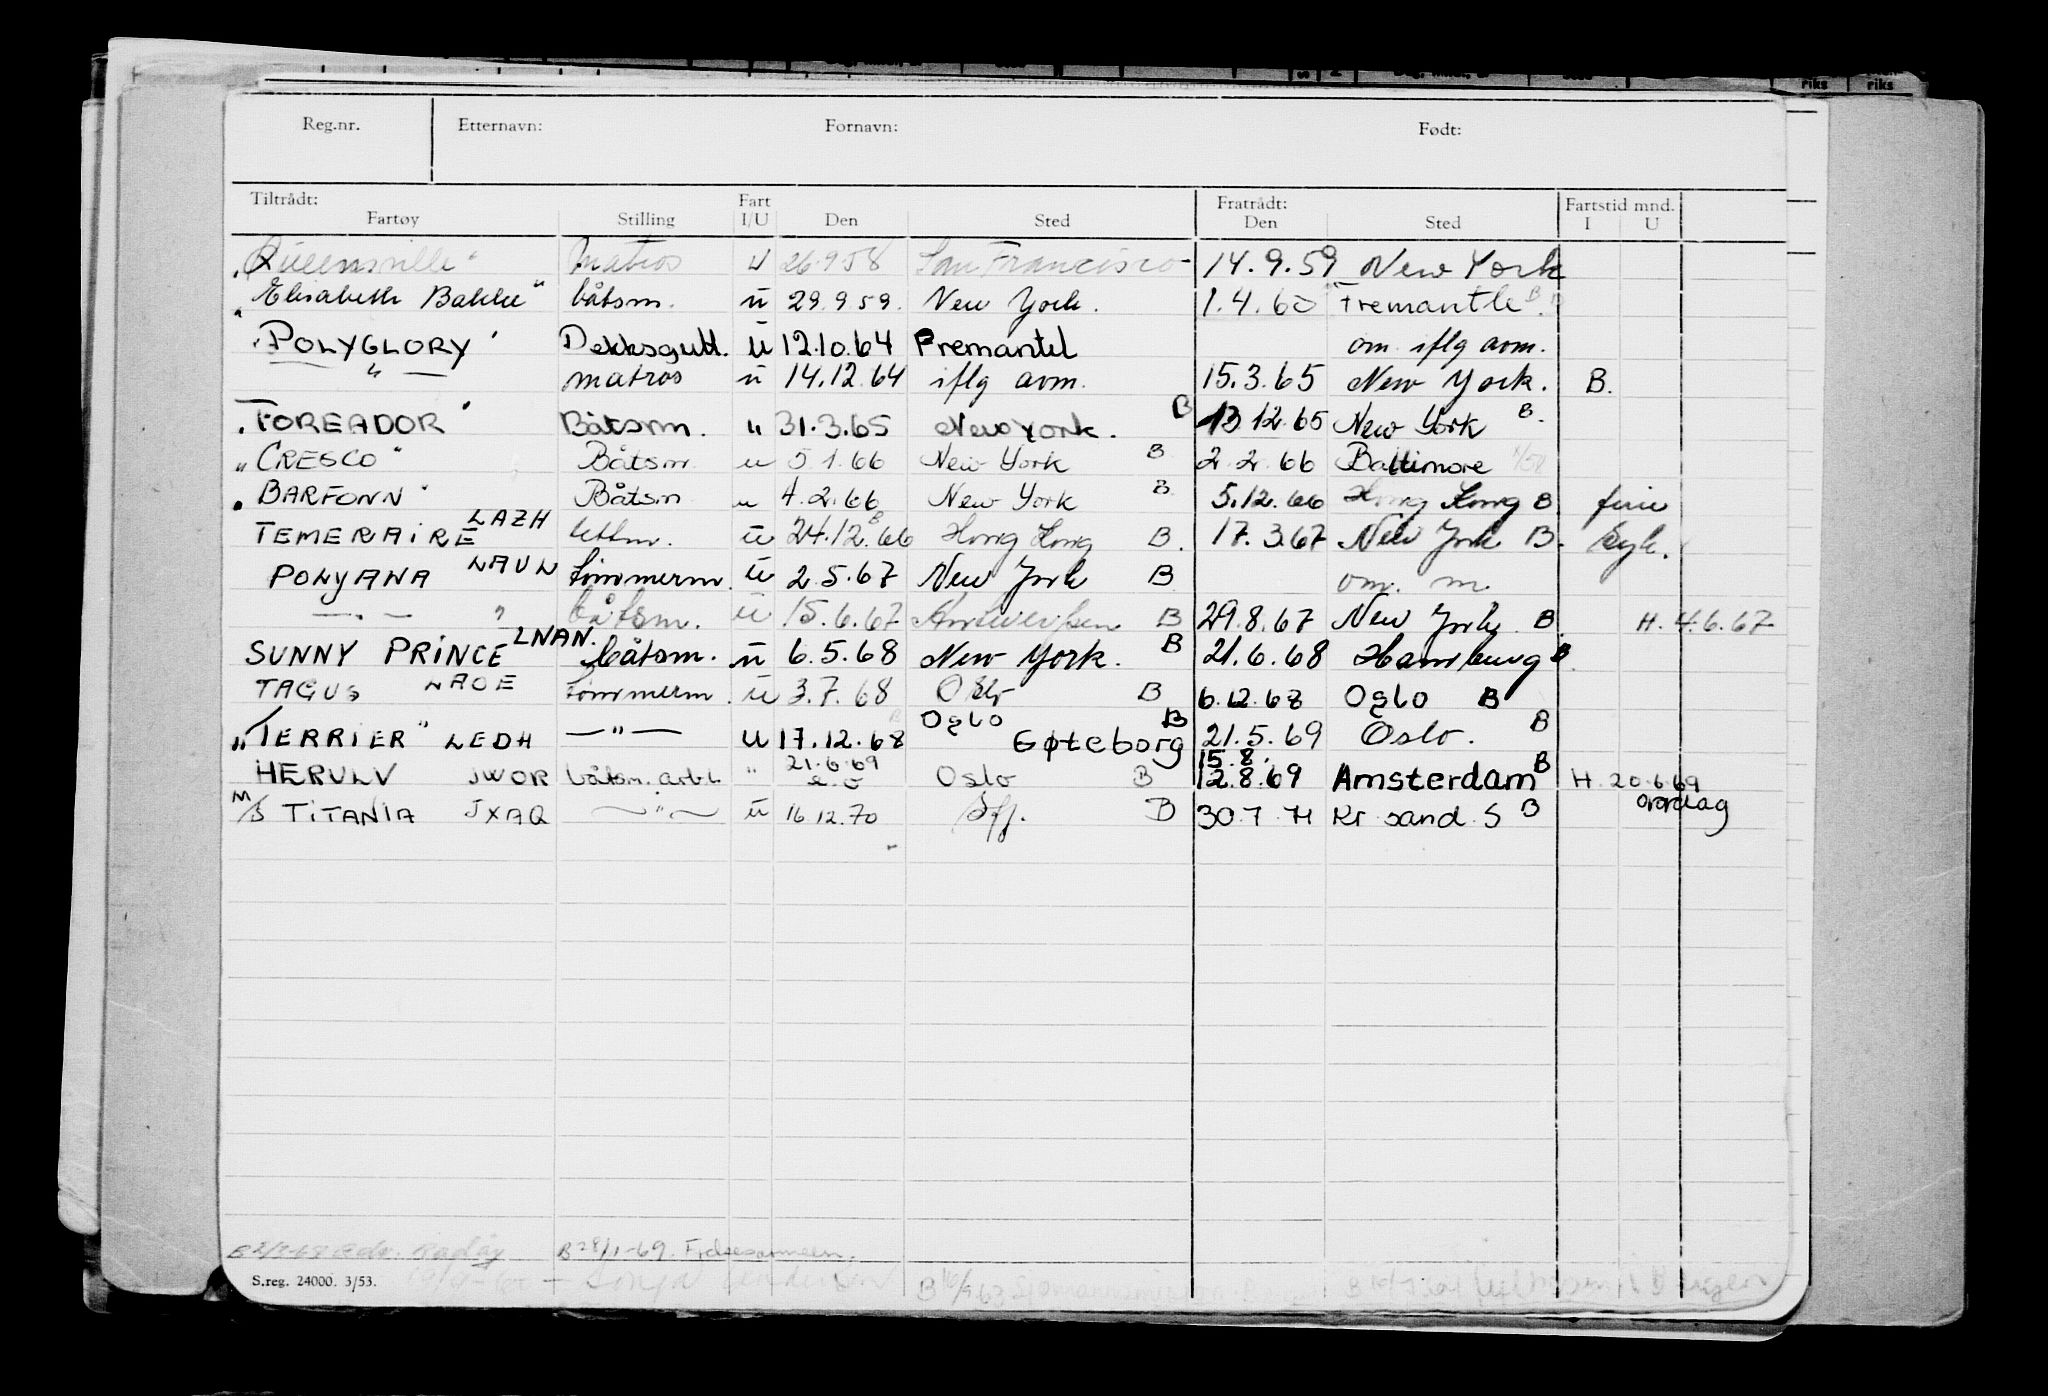 Reg.nr. Etternavn: Fornavn: Født:
Tiltrådt: Fart Fratrådt: Fartstid mnd.
Fartøy Stilling I/U Den Sted Den Sted I U
"Queensville" Matros U 26.9.58 San Francisco 14.9.59 New York
"Elisabeth Bakke" båtsm. u 29.9.59. New York. 1.4.60 Fremantle B.
"POLYGLORY" Dekksgutt. u 12.10.64 Fremantel om. iflg avm.
— " — matros u 14.12.64 iflg avm. 15.3.65 New York. B.
"TOREADOR" Båtsm. " 31.3.65 New York. B 13 12.65 New York B.
"CRESCO" Båtsm. u 5.1.66 New York B 2.2.66 Baltimore
"BARFONN" Båtsm u 4.2.66 New York B 5.12.66 Hong Kong B. ferie
TEMERAIRE LAZH lettm. u 24.12.66 B Hong Kong B. 17.3.67 New York B. Syk.
POLYANA LAUL tømmerm. u 2.5.67 New York B om. m.
— " — båtsm. u 15.6.67 Antwerpen B 29.8.67 New York B. H. 4.6.67
SUNNY PRINCE LNAN. båtsm. u 6.5.68 New York. B 21.6.68 Hamburg B.
TAGUS LAOE tømmerm. u 3.7.68 Oslo B 6.12.68 Oslo B
"TERRIER" LEDH — " — u 17.12.68 Oslo Gøteborg B 21.5.69 Oslo. B
HERULV JWOR båtsm. arb. " 21.6.69 Oslo B 15.8. 12.8.69 Amsterdam B H. 20.6.69
M/S TITANIA JXAQ — " — u 16.12.70 B 30.7.71 Kr sand. S B
B 28/1-69. Frelsesarmeen.
S.reg. 24000. 3/53.